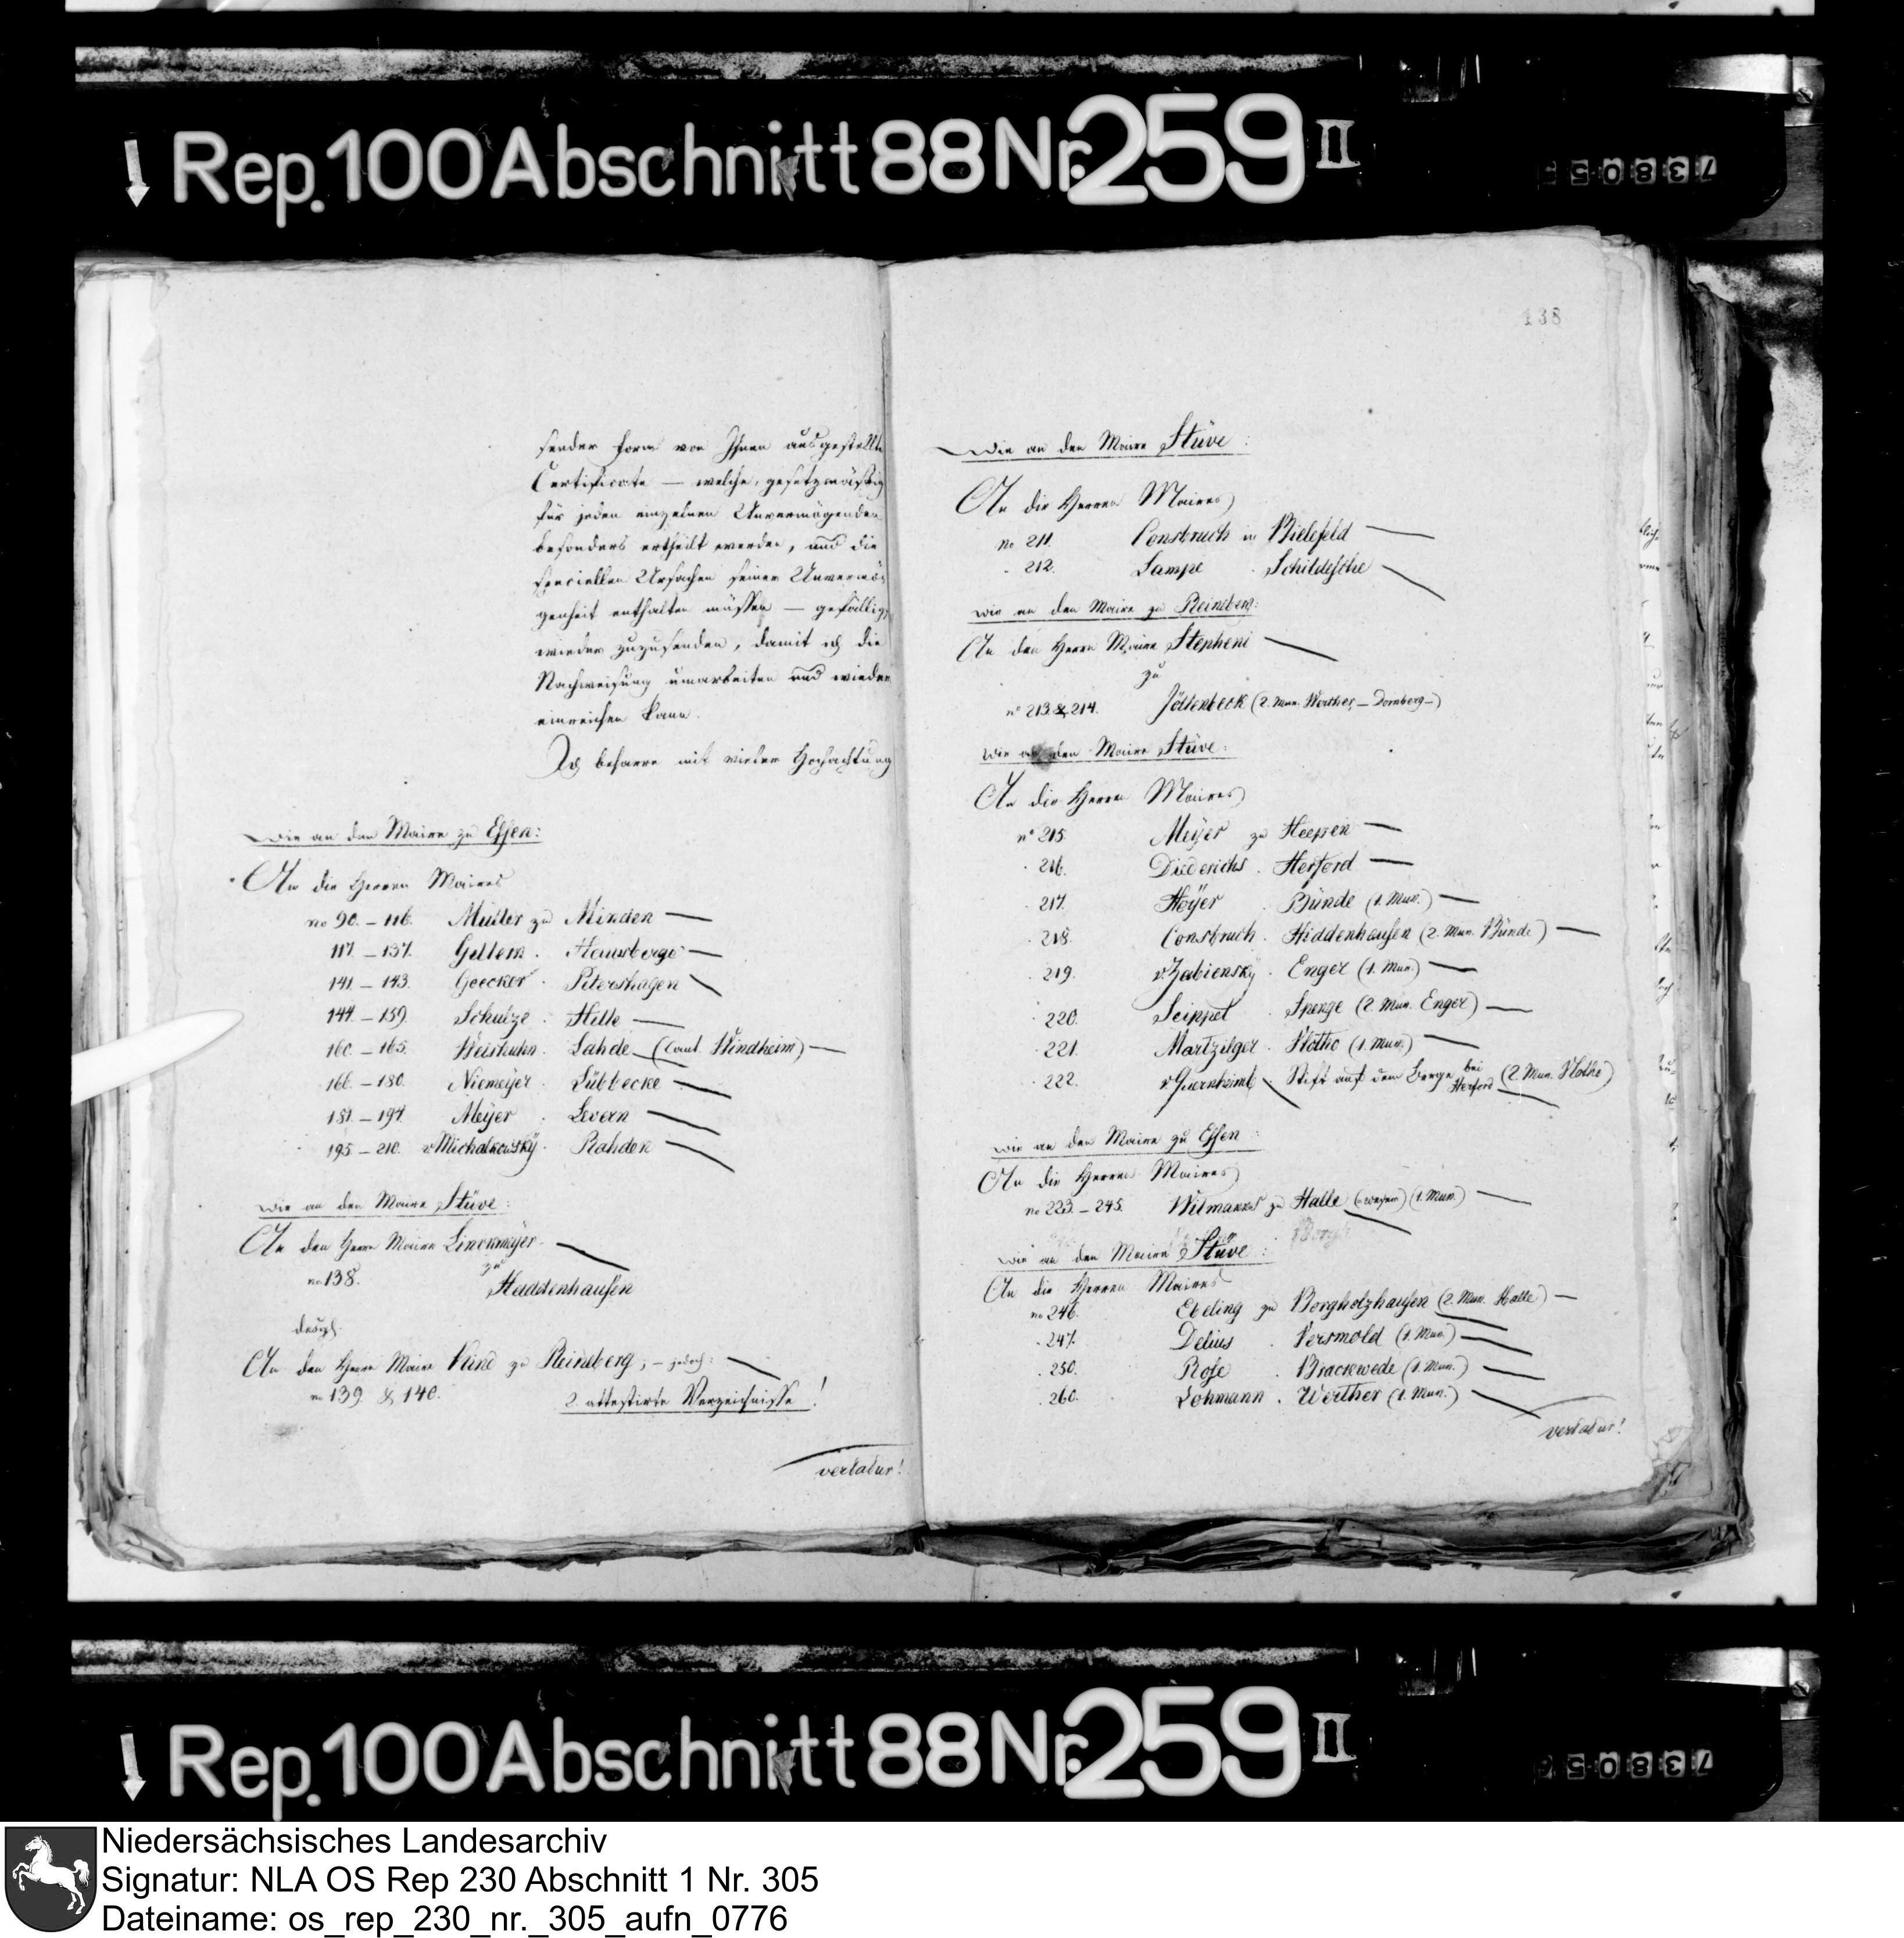 Rep. 100 Abschnitt 88 Nr. 259 II
738053
sender Form von Ihnen ausgestellte
Certificate — welche, gesetzmäßig
für jeden einzelnen Unvermögenden
besonders ertheilt werden, und die
speciellen Ursachen seiner Unvermö-
genheit enthalten müssen — gefällig,
wieder zuzusenden, damit ich die
Nachweisung umarbeiten und wieder
einreichen kann.
Ich beharre mit Hochachtung
Wie an den Maire zu Essen:
An die Herren Maires
no 90. – 116. Müller zu Minden —
117. – 137. Gellern . Hausberge —
141. – 143. Goecker . Petershagen
144. – 159. Schulze . Hille —
160. – 165. . Lahde (Cant. Windheim) —
166. – 180. Niemeÿer . Lübbecke —
181. – 194. Meÿer . Levern —
195. – 210. v Michalkowskÿ . Rahden —
Wie an den Maire Stüve:
An den Herrn Maire Linckmeÿer
zu
no. 138. Haddenhausen
desgl.
An den Herrn Maire Kind zu Reineberg; – jedoch:
no 139. & 140. 2. attestirte Verzeichnisse!
vertatur!
138
Wie an den Maire Stüve:
An die Herren Maires
no 211. Consbruch in Bielefeld —
. 212. Lampe . Schildesche
wie an den Maire zu Reineberg:
An den Herrn Maire Stepheni
zu
no 213. & 214. Jöllenbeck (2. Mun. Werther, – Dornberg –)
Wie an den Maire Stüve:
An die Herren Maires
no 215. Meÿer zu Heepen —
. 216. Diederichs . Herford —
. 217. Höÿer . Bünde (1. Mun.) —
. 218. Consbruch . Hiddenhausen (2. Mun. Bünde) —
. 219. v. Zabienskÿ . Enger (1. Mun.) —
. 220. Seippel . Spenge (2. Mun. Enger) —
. 221. Martzilger . Vlotho (1. Mun.) —
. 222. v Quernheimb . Stift auf dem Berge bei Herford (2. Mun. Vlotho)
wie an den Maire zu Essen:
An die Herren Maires
no 223. – 245. Witmanns zu Halle (1. Mun.) —
wie an den Maire Stüve:
An die Herren Maires
no 246. Ebeling zu Borgholzhausen (2. Mun. Halle) —
. 247. Delius . Versmold (1. Mun.)
. 250. Rose . Brackwede (1. Mun.)
. 260. Lohmann . Werther (1. Mun.)
vertatur!
Rep. 100 Abschnitt 88 Nr. 259 II
73805
Niedersächsisches Landesarchiv
Signatur: NLA OS Rep 230 Abschnitt 1 Nr. 305
Dateiname: os_rep_230_nr._305_aufn_0776